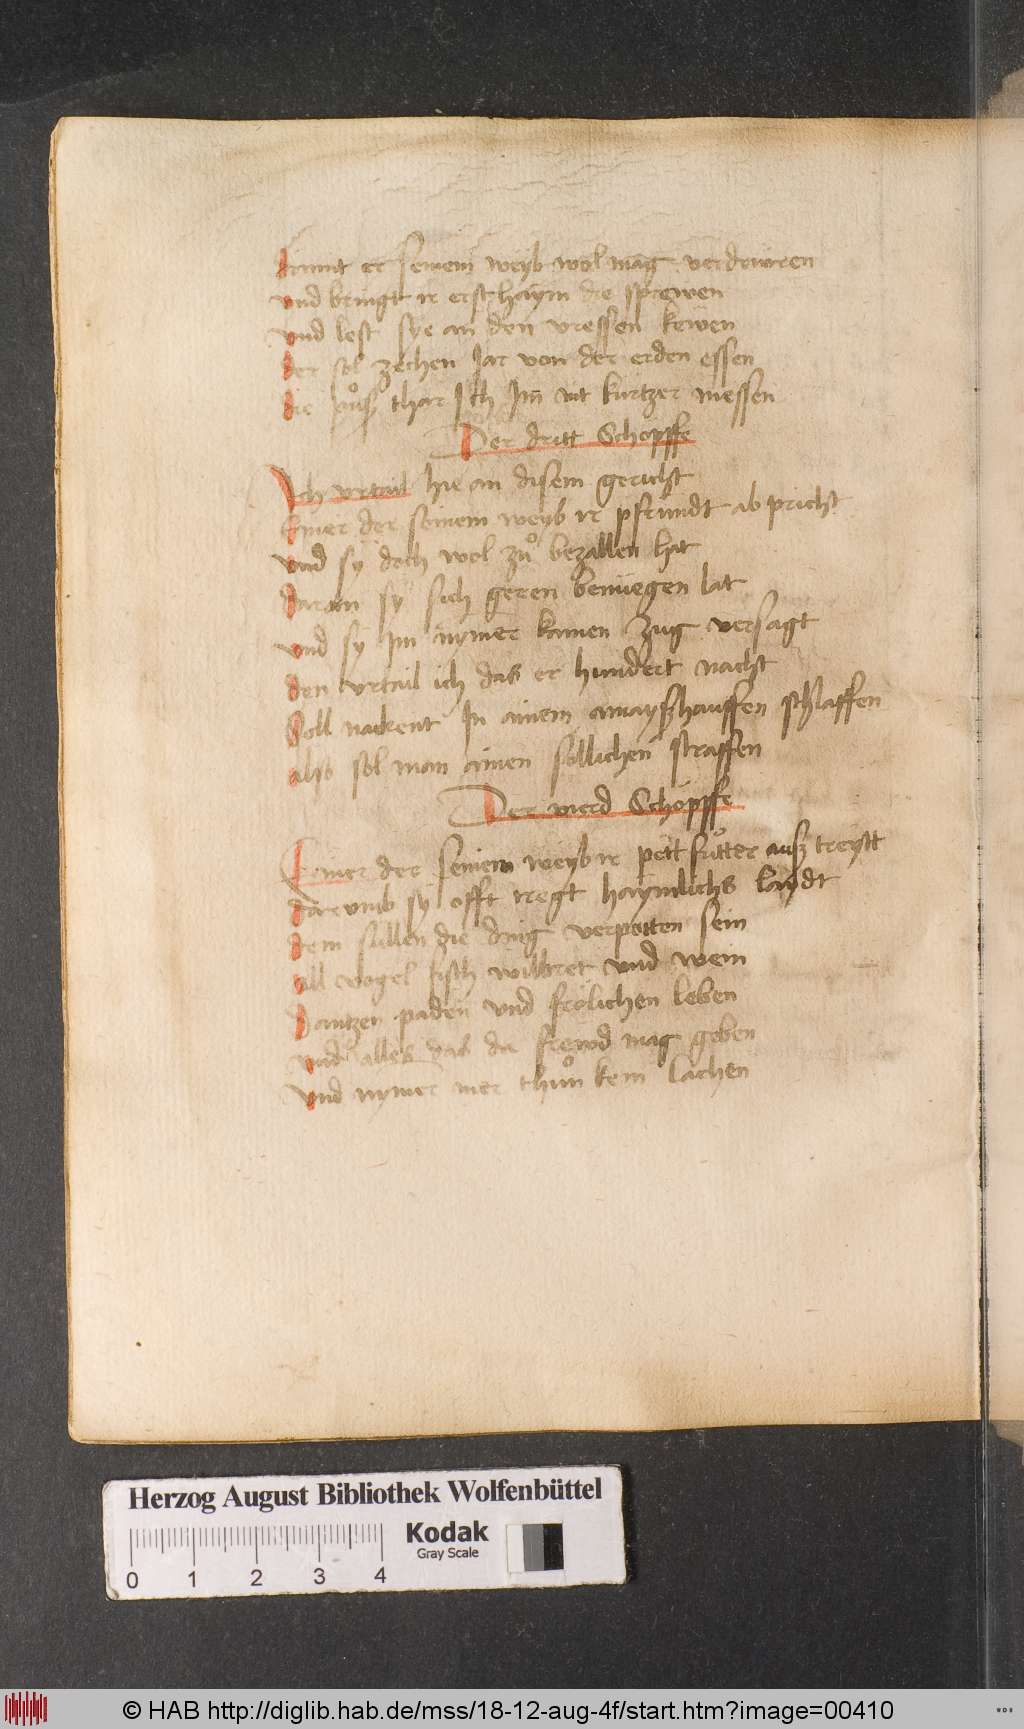 damit er seinem weyb wol mag verdewren
und bringt ir erst haym die sprewen
und lest sye an den vressen kewen
der sol zechen Jar von der erden essen
die puͦß thar Ich Im nit kurtzer messen
Der dritt Schopffe
Ich vrtail hie an disem gericht
Einer der seinem weyb ir pfrundt ab pricht
und sy doch wol zuͦ bezallen hat
daran sy sich geren benuegen lat
und sy Im nymer kainen Zug versagt
den vrtail ich das er hundert nacht
Soll nackent In ainem amayßhauffen schlaffen
also sol man ainen sollichen straffen
Der vierd Schopffe
Einer der seinem weyb ir pett fuͦtter auß treytt
darumb sy offt tregt haymlichs laydt
dem sullen die ding verpotten sein
all vogel fisch wilbret und wein
Dantzen paden und frolichen leben
und alles das da frewd mag geben
und nymer mer thuͦn kein lachen
Herzog August Bibliothek Wolfenbüttel
Kodak
Gray Scale
0 1 2 3 4
© HAB http://diglib.hab.de/mss/18-12-aug-4f/start.htm?image=00410